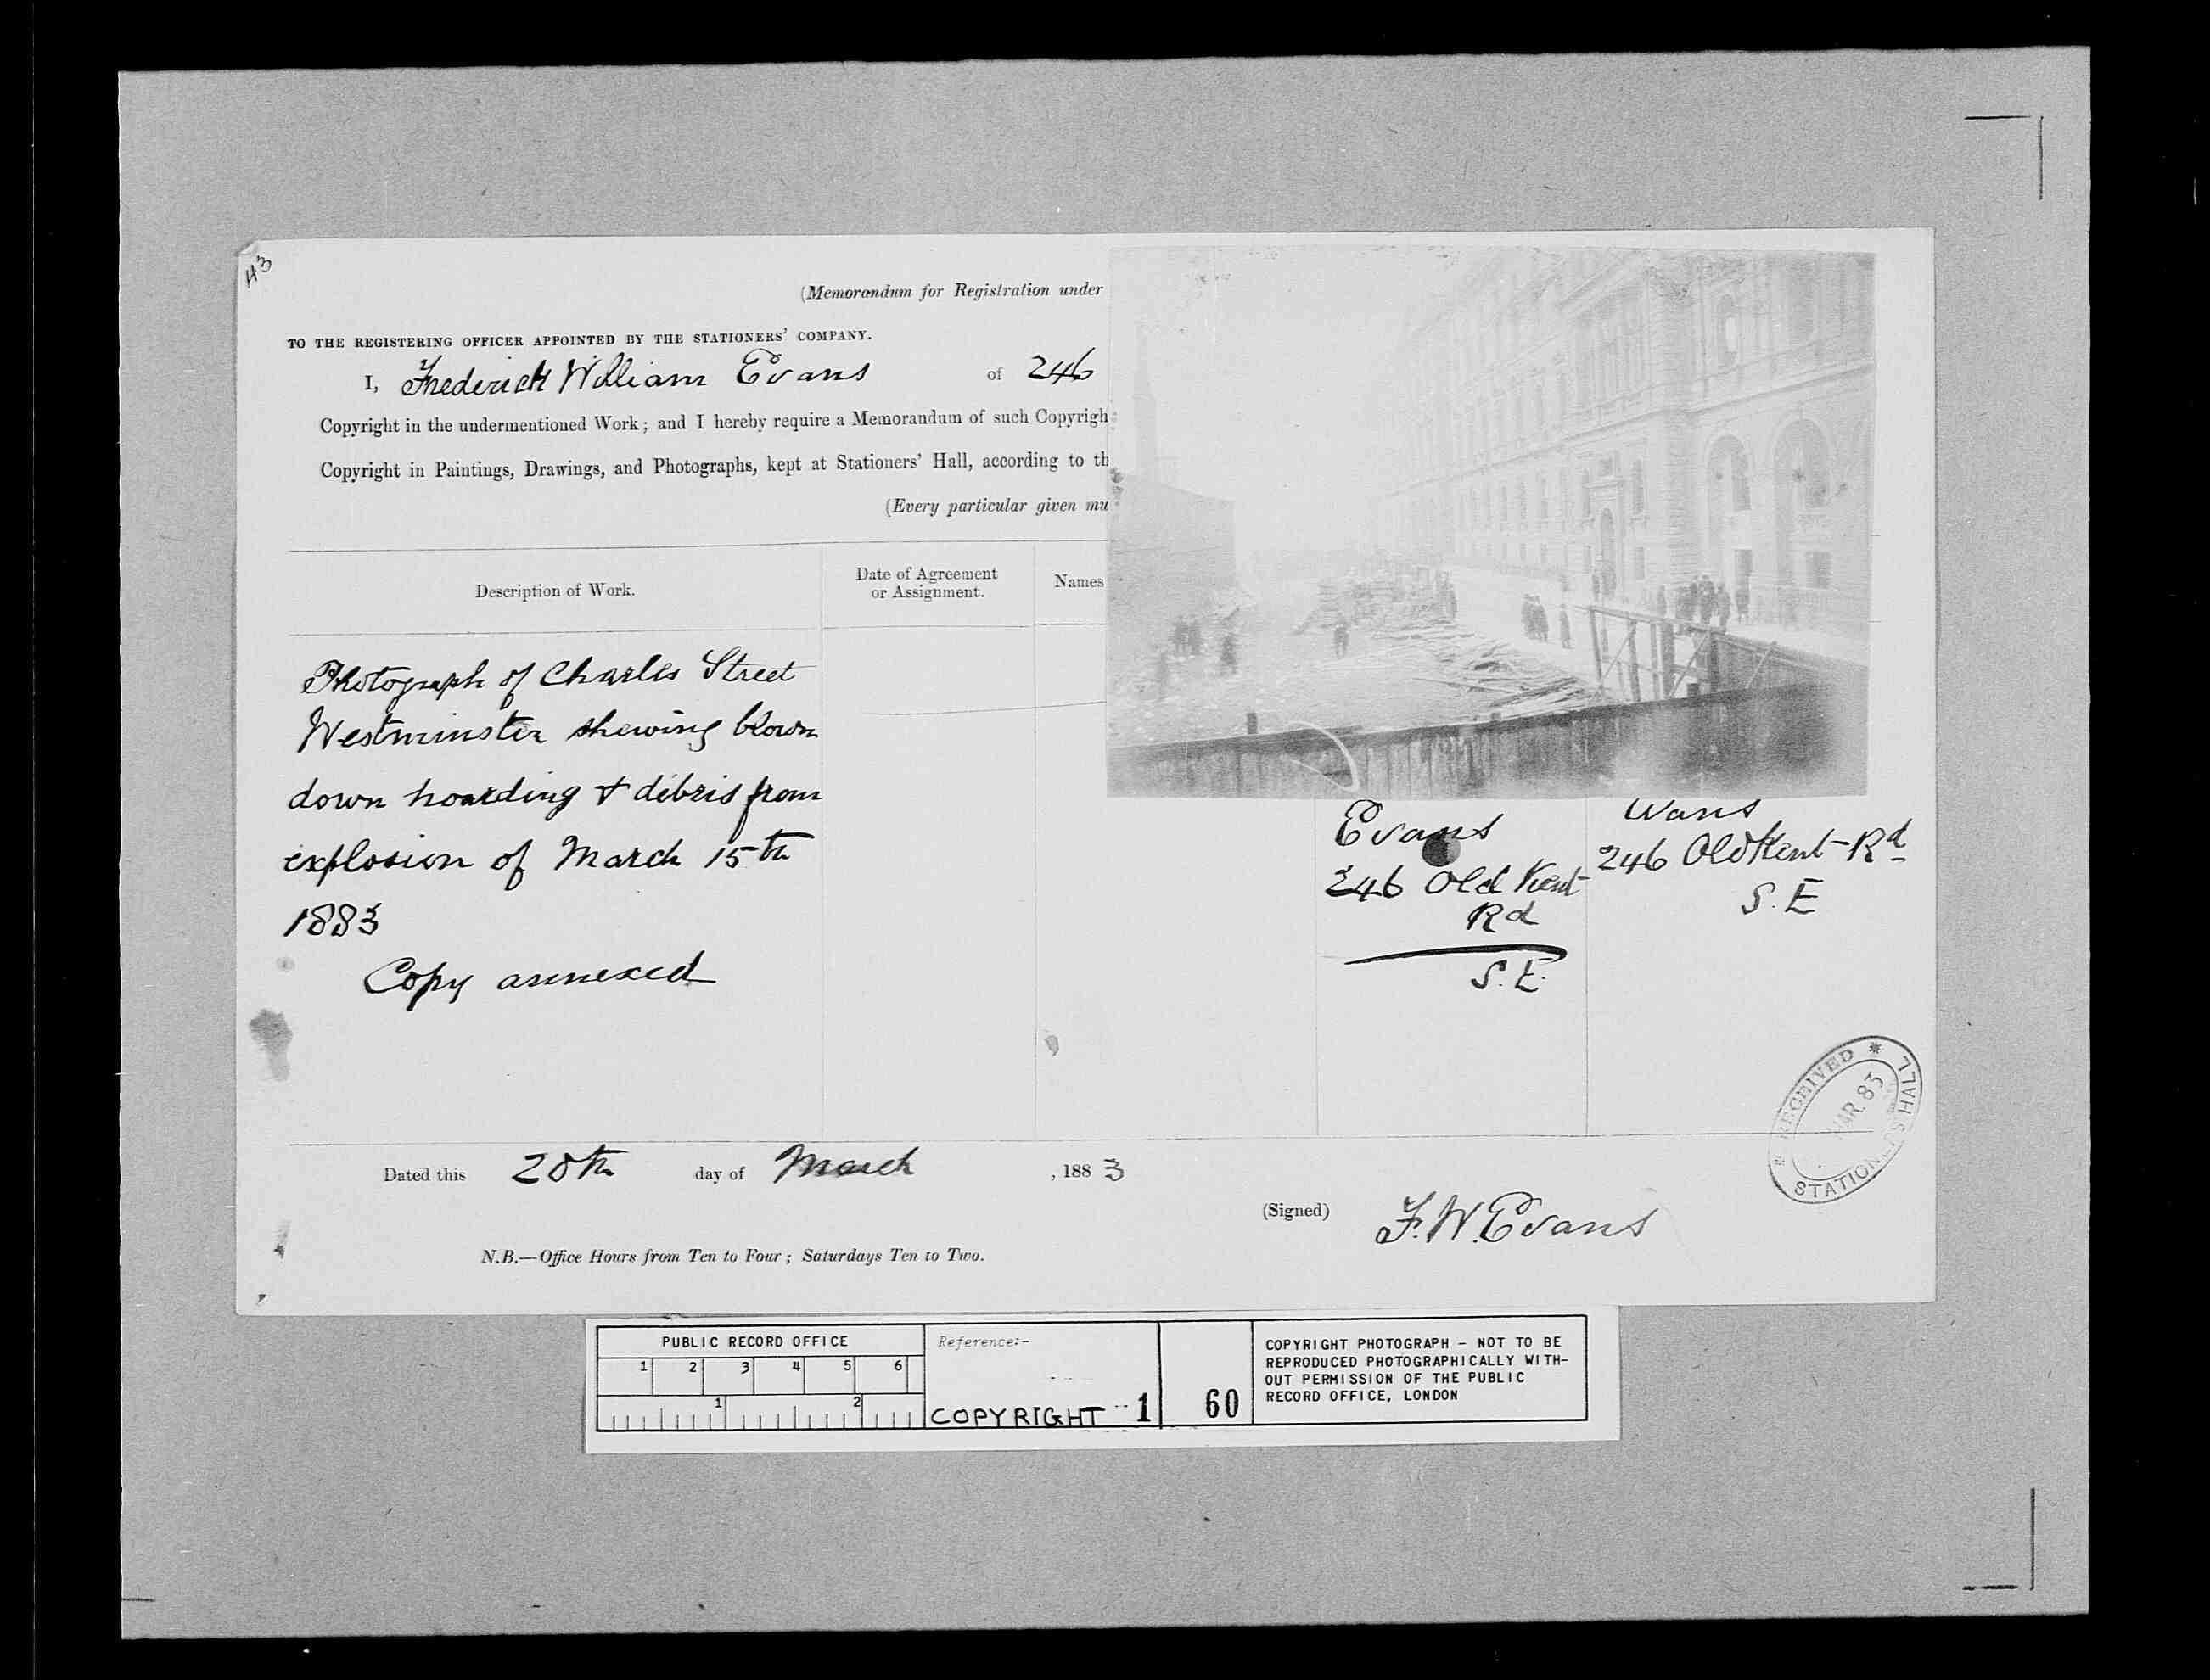 43
(Memorandum for Registration under
TO THE REGISTERING OFFICER APPOINTED BY THE STATIONERS' COMPANY.
I, Frederick William Evans of 246
Copyright in the undermentioned Work; and I hereby require a Memorandum of such Copyrigh
Copyright in Paintings, Drawings, and Photographs, kept at Stationers' Hall, according to th
(Every particular given mu
Description of Work.
Date of Agreement
or Assignment.
Names
Photograph of Charles Street
Westminster shewing blown
down hoarding & débris from
explosion of March 15th
1883
Copy annexed
Evans
246 Old Kent
Rd
S.E.
Evans
246 Old Kent Rd
S.E
RECEIVED
MAR.83
STATIONERS HALL
Dated this 28th day of March , 1883
(Signed) F.W.Evans
N.B.—Office Hours from Ten to Four; Saturdays Ten to Two.
PUBLIC RECORD OFFICE
1 2 3 4 5 6
1 2
Reference:-
COPYRIGHT 1
60
COPYRIGHT PHOTOGRAPH - NOT TO BE
REPRODUCED PHOTOGRAPHICALLY WITH-
OUT PERMISSION OF THE PUBLIC
RECORD OFFICE, LONDON